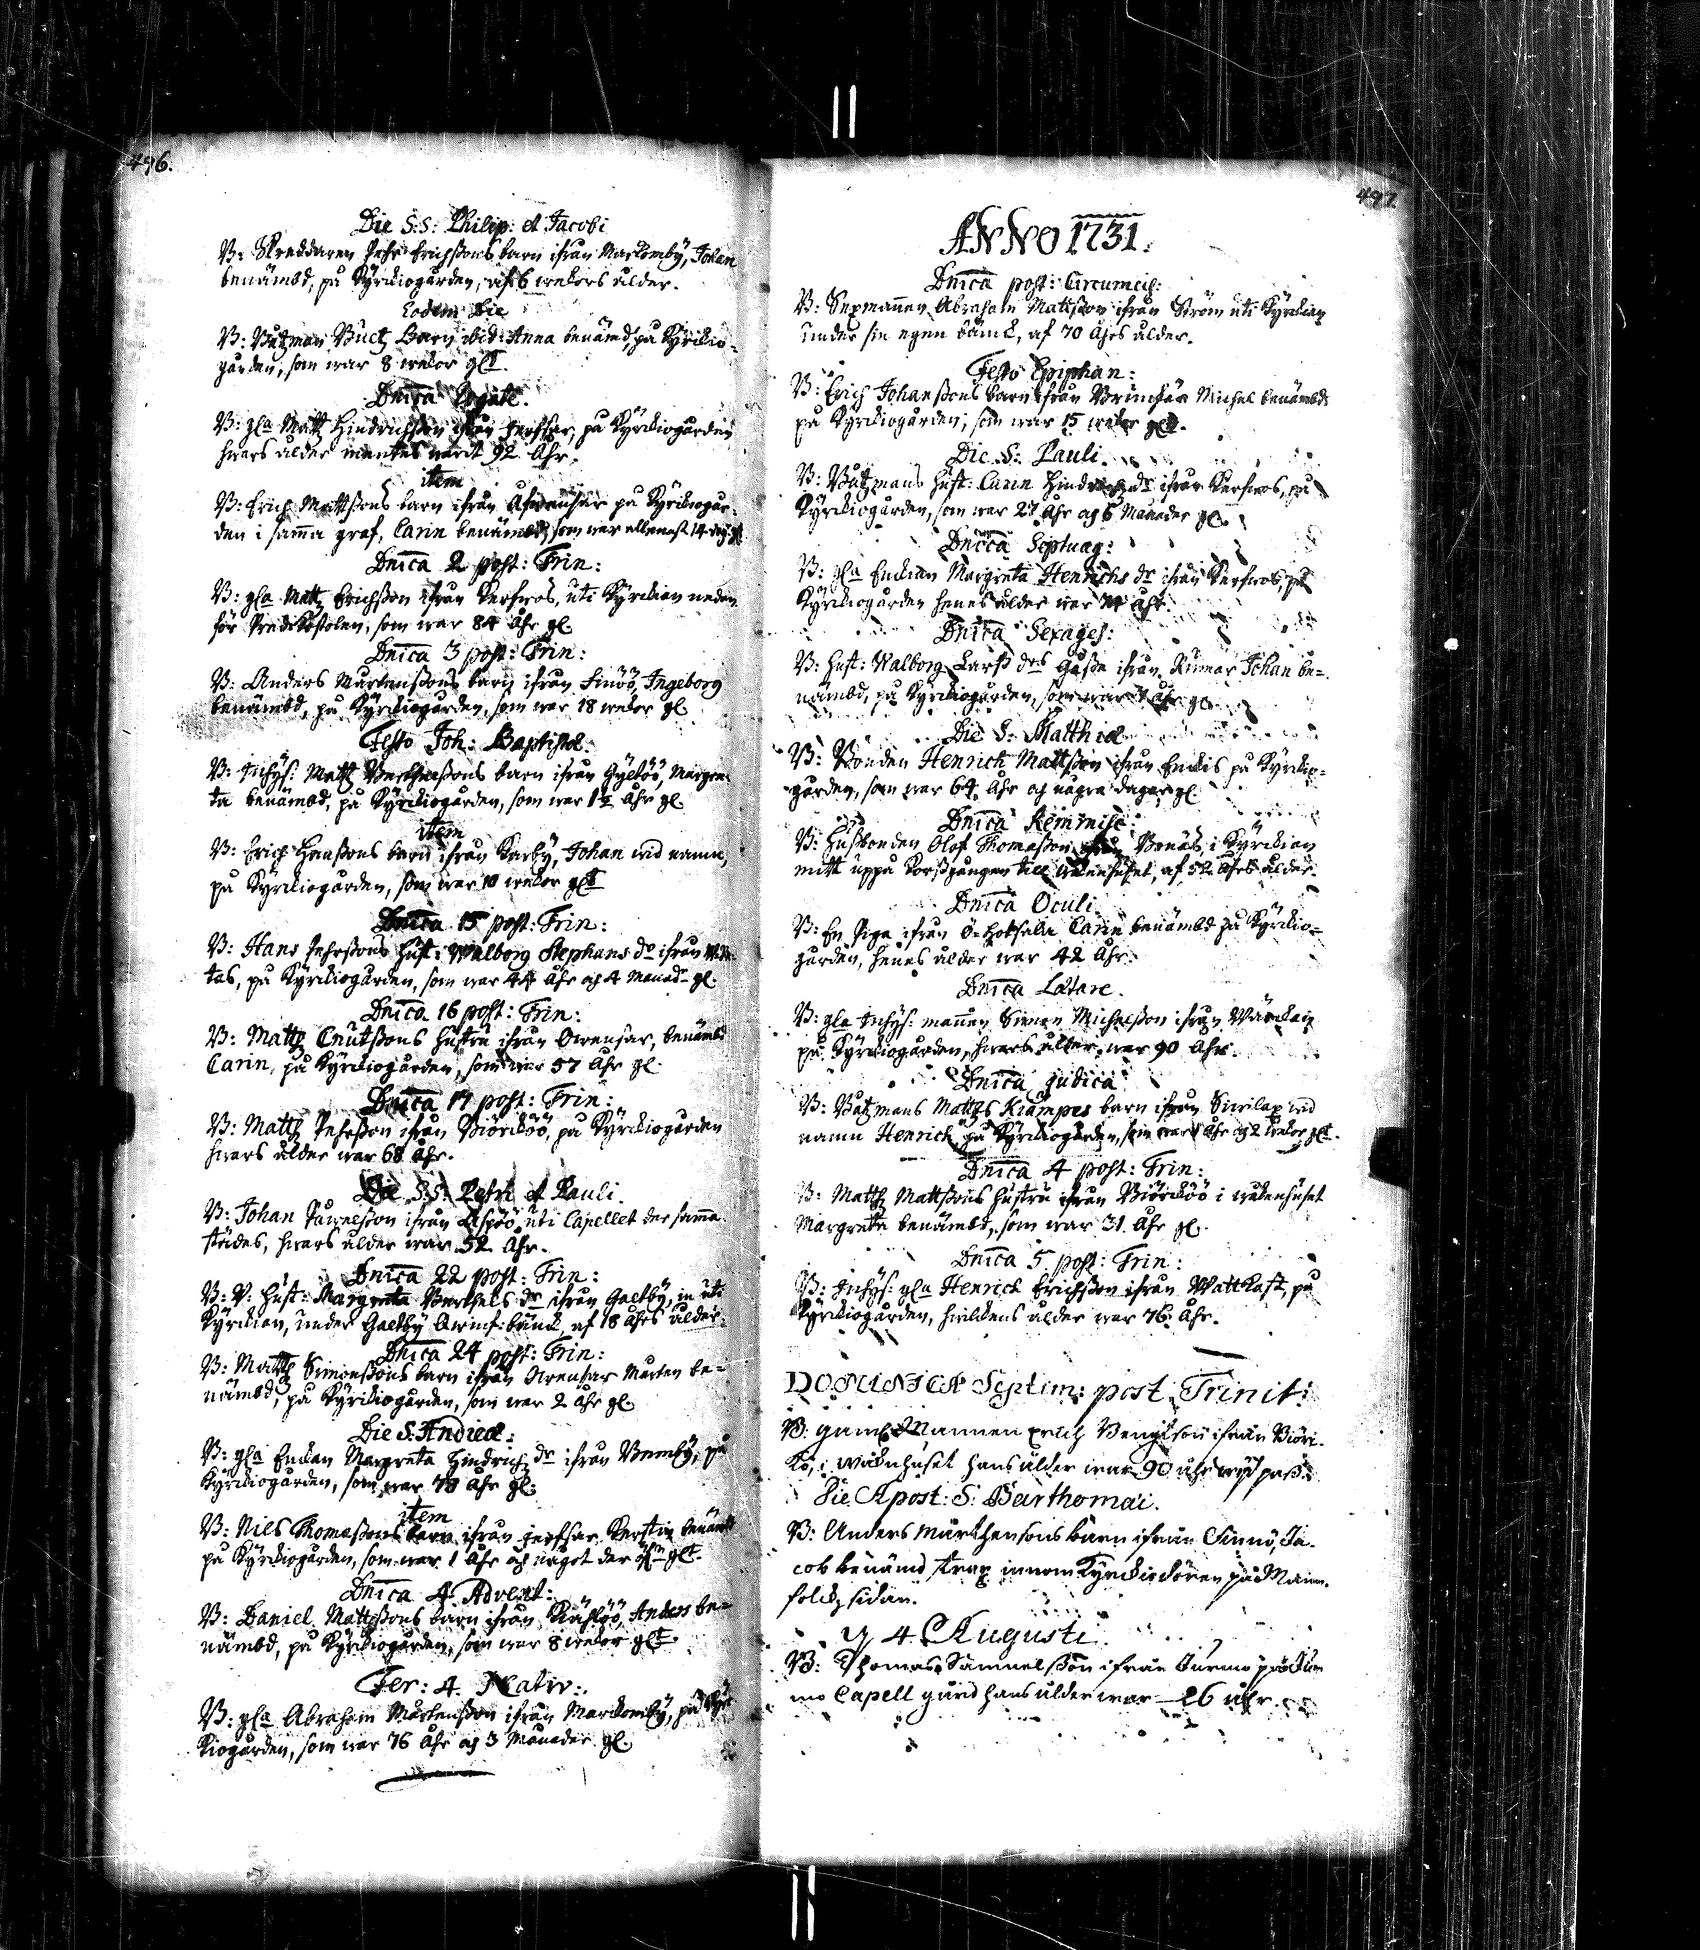 496.
Die S:S: Philip: et Jacobi
B: Skreddaren Pehr Erichßons barn ifrån Markomby, Johan
benämbd, på Kyrkiogården, af 6 wekors ålder.
Eodem Die
B: Båtzman Buctz Barn ibid: Anna benämd, på Kyrkio-
gården, som war 8 wekor glt.
Dnica Rogate.
B: gla Matz Hindrichßon ifrån på Kyrkiogården
hwars ålder mentes warit 92 åhr.
item
B: Erich Mattßons barn ifrån på Kyrkiogår-
den i samma graf, Carin benämbd, som war allenast 14 dag: gl
Dnica 2 post: Trin:
B: gla Matz Erichßon ifrån Kerfwos, uti Kyrkian neden
för Predikostolen, som war 84 åhr gl.
Dnica 3 post: Trin:
B: Anders Mårtenßons barn ifrån Finöö, Ingeborg
benämbd, på Kyrkiogården, som war 18 wekor gl.
Festo Joh: Baptistæ:
B: Inhys: Matz barn ifrån Gyltöö, Margre-
ta benämbd, på Kyrkiogården, som war 1½ åhr gl.
item
B: Erich Hanßons barn ifrån Karby, Johan wid namn,
på Kyrkiogården, som war 10 wekor glt
Dnica 15 post: Trin:
B: Hans Pehrßons Hust: Walborg Stephans dr ifrån
tas, på Kyrkiogården, som war 44 åhr och 4 månadr gl.
Dnica 16 post: Trin:
B: Matz Cnutßons hustru ifrån benämbd
Carin, på Kyrkiogården, som war 57 åhr gl.
Dnica 17 post: Trin:
B: Matz Pehrßon ifrån Biörköö, på Kyrkiogården
hwars ålder war 68 åhr.
Die S:S: Petri et Pauli.
B: Johan Påwelßon ifrån Aspöö uti Capellet der samma
städes, hwars ålder war 52 åhr.
Dnica 22 post: Trin:
B: V: Hust: Margreta Berthels dr ifrån Galtby, in uti
Kyrkian, under Galtby bänck, af 18 åhrs ålder.
Dnica 24 post: Trin:
B: Matz Simonßons barn ifrån Mårten be-
nämbd, på Kyrkiogården, som war 2 åhr gl.
Die S: Andreæ:
B: gla Enckan Margreta Hindrichz dr ifrån på
Kyrkiogården, som war 79 åhr gl:
item
B: Nils Thomaßons barn ifrån Kerstin benämbd
på Kyrkiogården, som war 1 åhr och något der glt.
Dnica 4 Advent:
B: Daniel Mattßons barn ifrån Anders be-
nämbd, på Kyrkiogården, som war 8 wekor glt.
Fer: 4. Nativ:
B: gla Abraham Mårtenßon ifrån Markomby, på Kyr
kiogården, som war 76 åhr och 3 månader gl.
497.
ANNO 1731.
Dnica post: Circumcis:
B: Sexmannen Abraham Mattßon ifrån Ström uti Kyrkian
under sin egen bänck, af 70 åhrs ålder.
Festo Epiphan:
B: Erich Johanßons barn ifrån Michel benämbd
på Kyrkiogården, som war 15 wekor glt.
Die S: Pauli.
B: Båtzmans Hust: Carin Hindrichz dr ifrån Kerfwos, på
Kyrkiogården, som war 27 åhr och 6 månader gl.
Dnica Septuag:
B: gla Enckian Margreta Henrichs dr ifrån Kerfwos, på
Kyrkiogården henes ålder war 74 åhr.
Dnica Sexages:
B: Hust: Walborg Larß drs ifrån Rumar Johan be-
nämbd, på Kyrkiogården, som war åhr gl.
Die S: Matthiæ
B: Bonden Henrich Mattßon ifrån Enckis på Kyrkio-
gården, som war 64 åhr och några dagar gl.
Dnica Reminisc:
B: Hußbonden Olof Thomaßon ifrån Bonäs i Kyrkian
mitt uppå Korßgången till wåkenhuset, af 52 åhrs ålder.
Dnica Oculi.
B: En Piga ifrån Carin benämbd på Kyrkio-
gården, henes ålder war 42 åhr.
Dnica Lætare.
B: gla Inhys: mannen Simon Michelßon ifrån
på Kyrkiogården, hwars ålder war 90 åhr.
Dnica Judica
B: Båtzmans Mattes Kiämpes barn ifrån wid
namn Henrich, på Kyrkiogården, som war 1 åhr och 2 wekor glt.
Dnica 4 post: Trin:
B: Matz Mattßons hustru ifrån Biörköö i wåkenhuset
Margreta benämbd, som war 31 åhr gl.
Dnica 5 post: Trin:
B: Inhys: gla Henrich Erichßon ifrån Wattkast, på
Kyrkiogården, hwilckens ålder war 76 åhr.
DOMINICA Septim: post Trinit:
B: gaml Mannen ifrån Biörc-
kö, i wåknhuset hans ålder war 90 åhr wyd paß.
Die Apost: S: Barthomai.
B: Anders Mårthensons barn ifrån Finnö, Ja-
cob benämd, innom Kyrckiodören på Mann-
folckz sidan.
4 Augusti.
B: Thomas Samuelßon ifrån Jurmo på Jur
mo Capell gård hans ålder war 26 åhr.